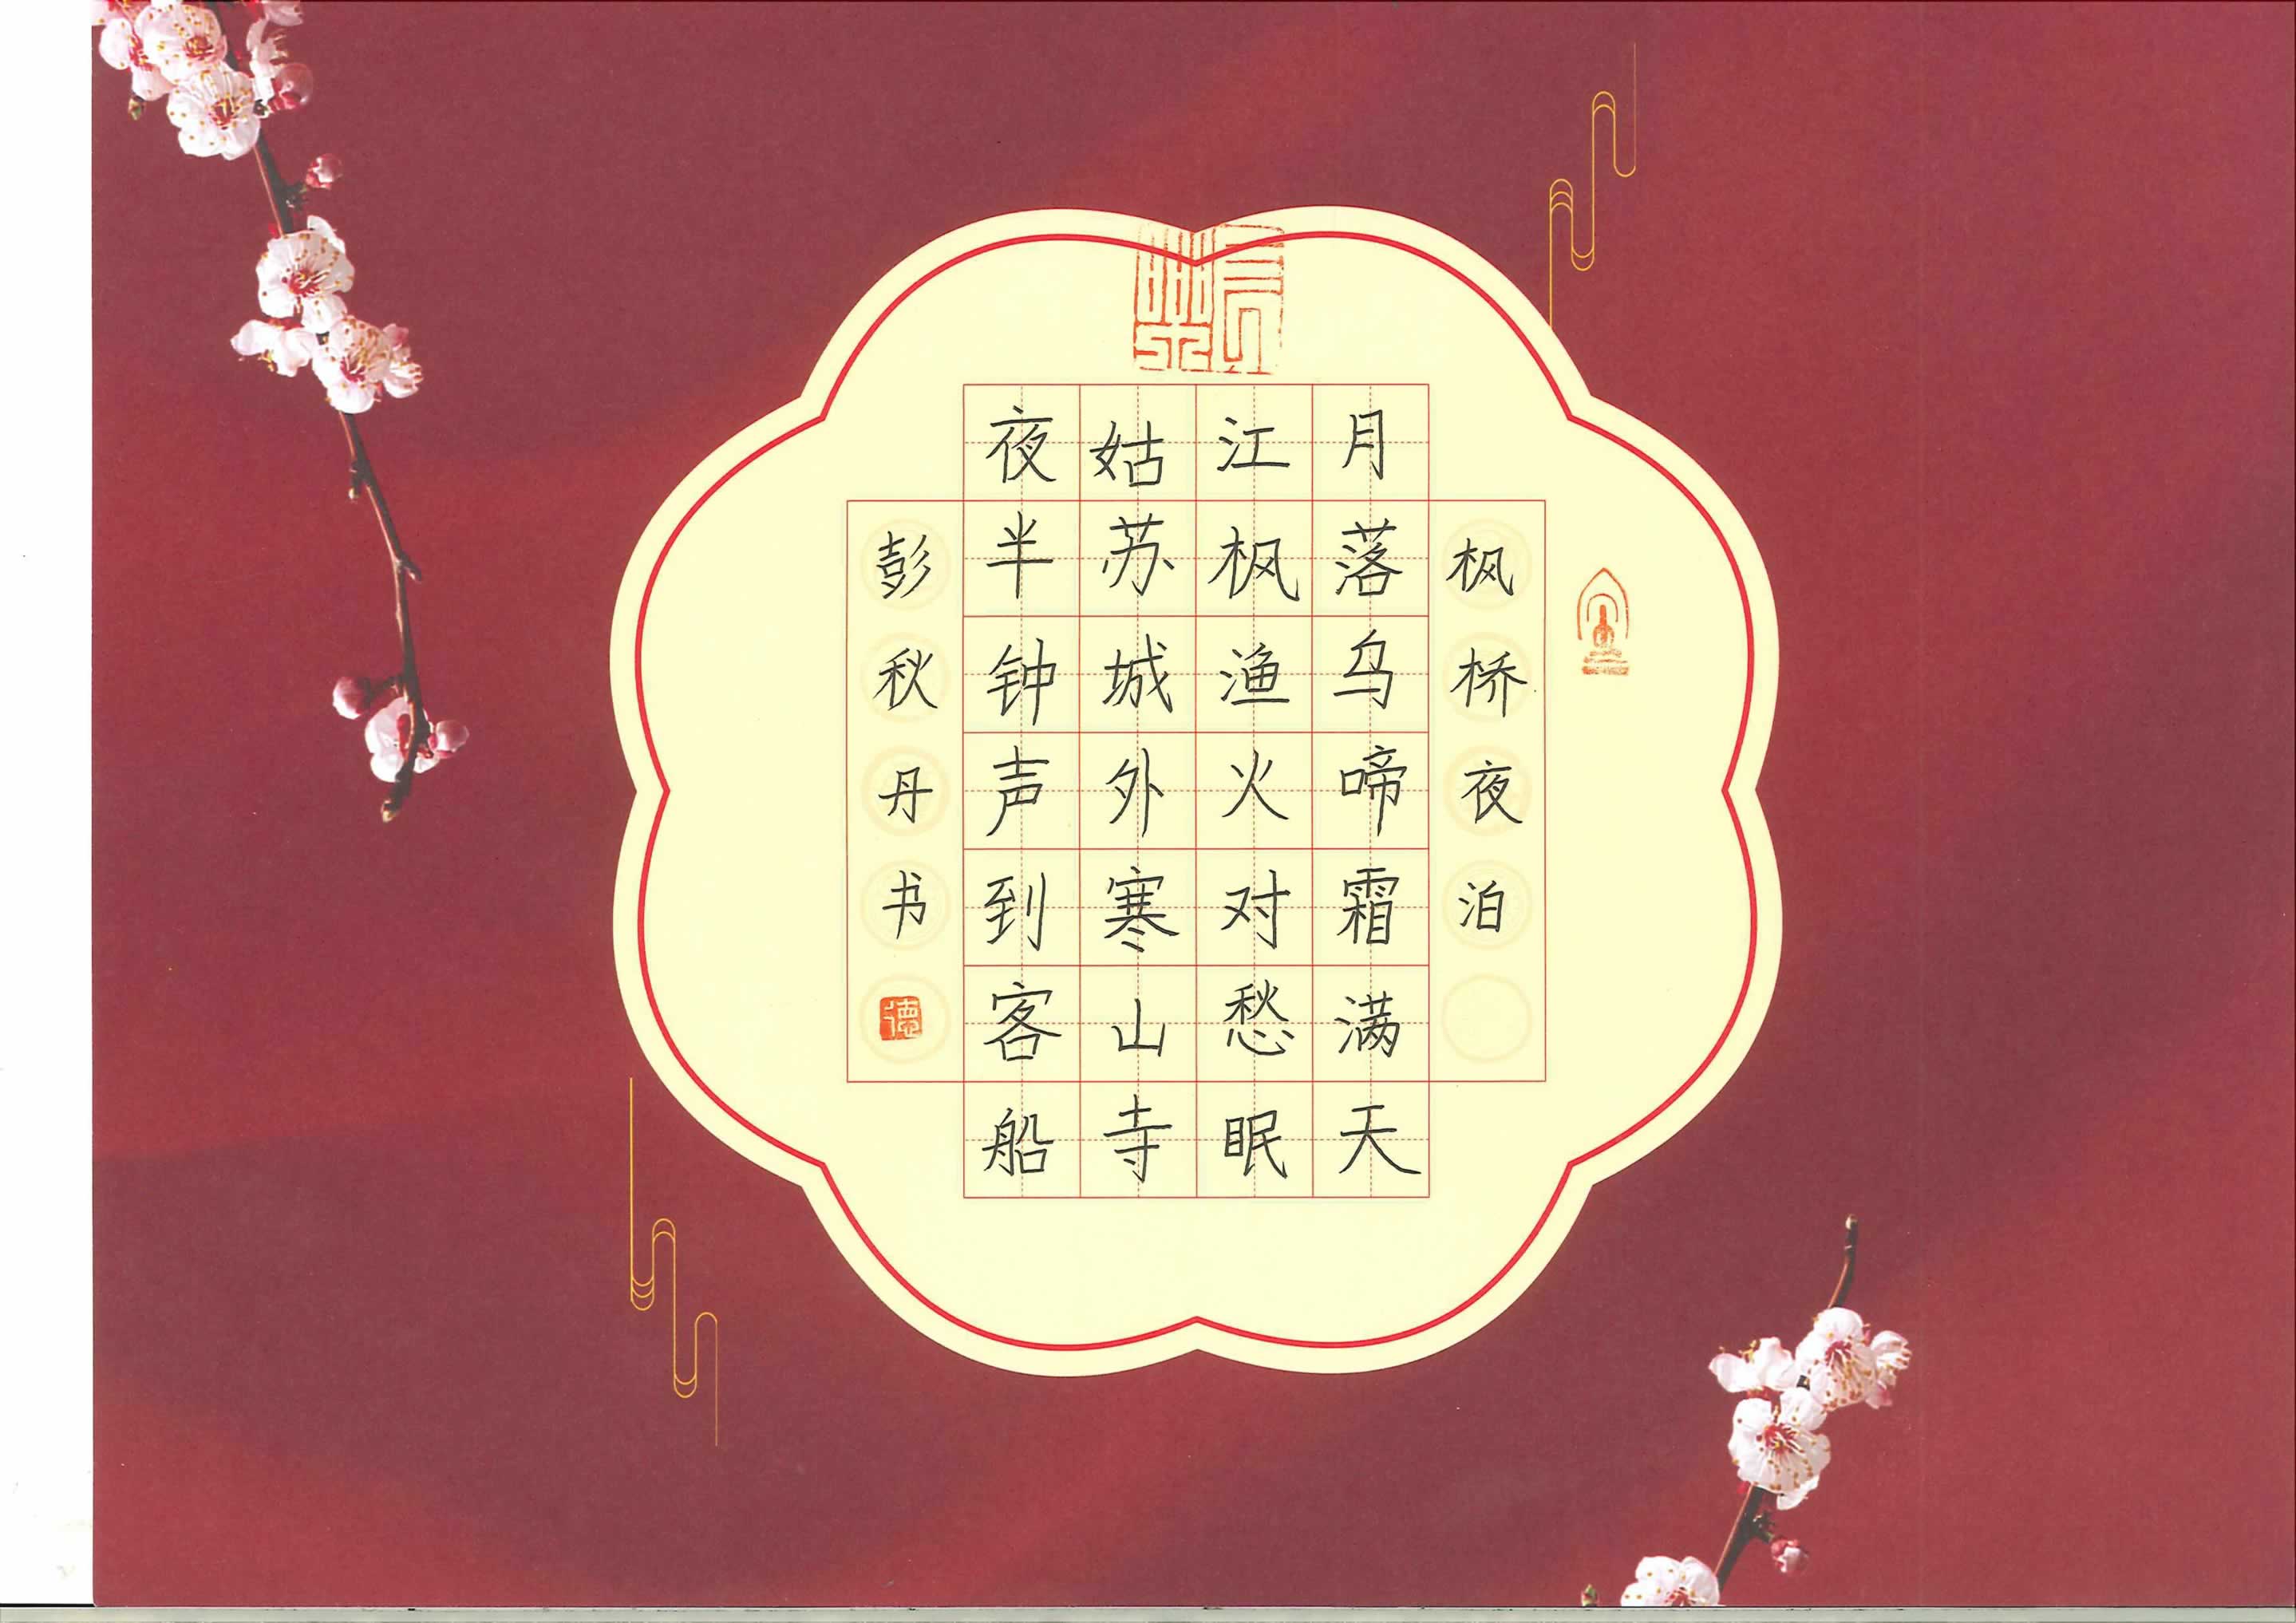 枫桥夜泊
月落乌啼霜满天
江枫渔火对愁眠
姑苏城外寒山寺
夜半钟声到客船
彭秋丹书
德